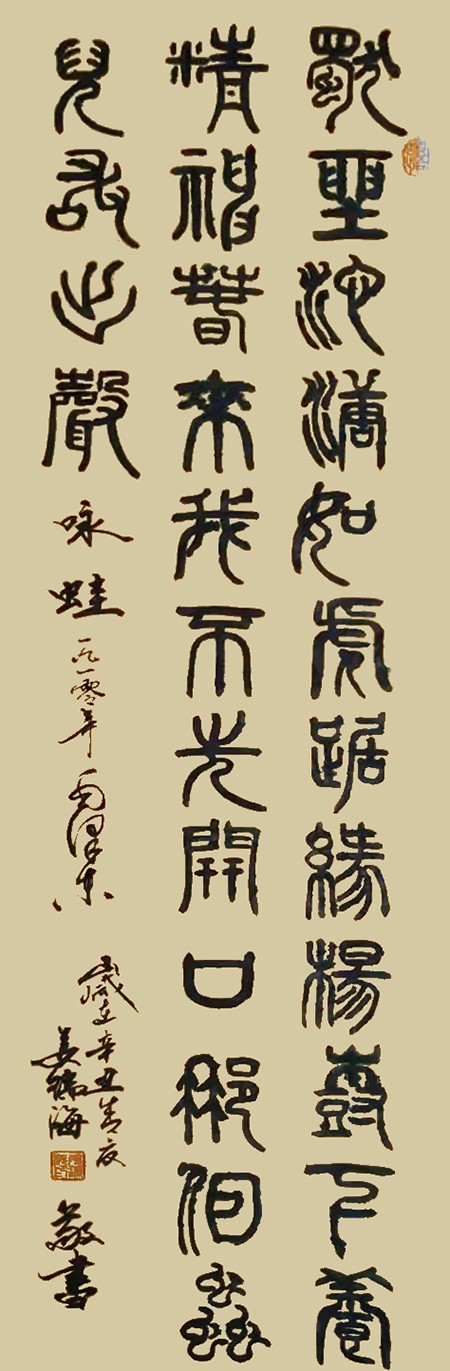 獨坐池塘如虎踞綠楊樹下養
精神春來我不先開口那個蟲
兒敢作聲
咏蛙 一九一零年 毛澤東
歲在辛丑
姜瑞海 敬書